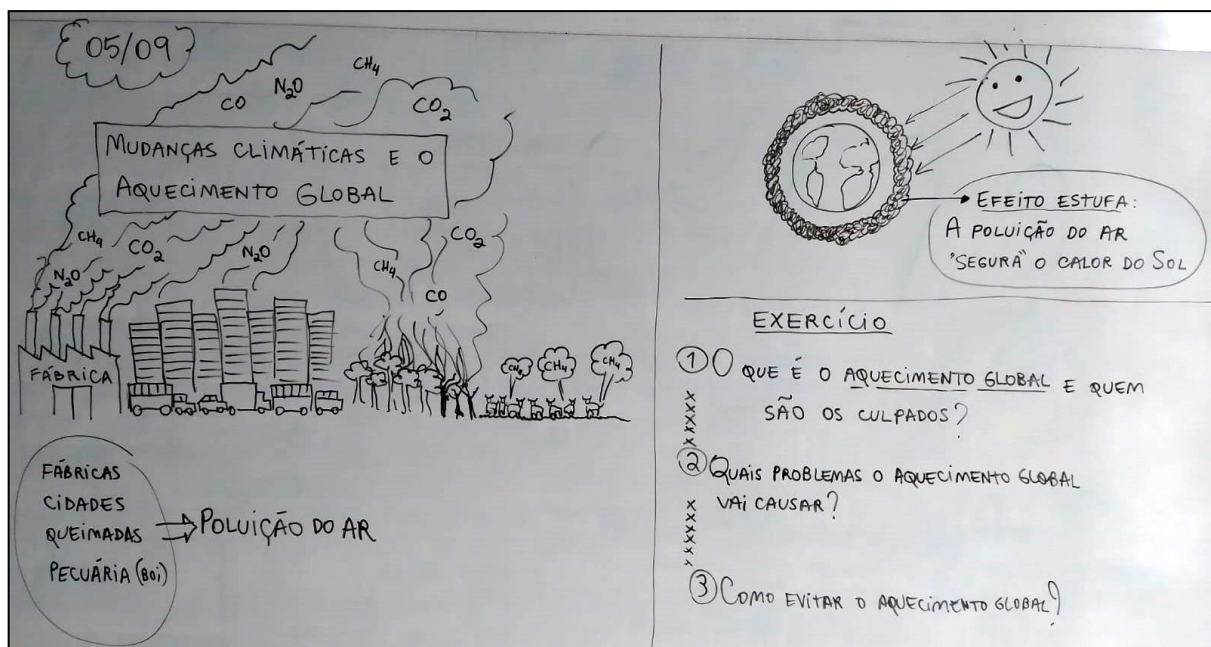 05/09
CH4
CO
N2O
CO2
MUDANÇAS CLIMÁTICAS E O
AQUECIMENTO GLOBAL
CH4
CO2
N2O
N2O
CH4
CO
CO2
FÁBRICA
CH4
CH4
CH4
FÁBRICAS
CIDADES
QUEIMADAS
PECUÁRIA (BOI)
POLUIÇÃO DO AR
EFEITO ESTUFA:
A POLUIÇÃO DO AR
"SEGURA" O CALOR DO SOL
EXERCÍCIO
1 O QUE É O AQUECIMENTO GLOBAL E QUEM
SÃO OS CULPADOS?
2 QUAIS PROBLEMAS O AQUECIMENTO GLOBAL
VAI CAUSAR?
3 COMO EVITAR O AQUECIMENTO GLOBAL?